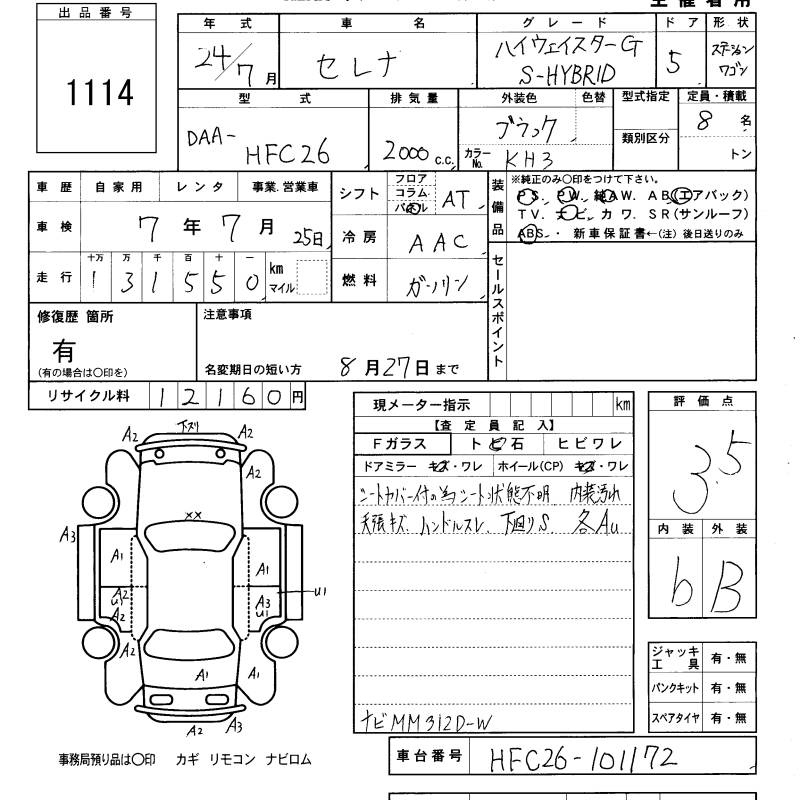 出品番号
1114
年式 車名 グレード ドア 形状
24/7月 セレナ ハイウェイスターG S-HYBRID 5 ステーションワゴン
型式 排気量 外装色 色替 型式指定 定員・積載
DAA-HFC26 2000c.c. ブラック 類別区分 8名
カラーNo. KH3 トン
車歴 自家用 レンタ 事業.営業車 シフト フロア コラム パネル AT
装備品 ※純正のみ〇印をつけて下さい。
PS. PW. 純AW. AB(エアバック)
TV. ナビ. カワ. SR(サンルーフ)
ABS. ・ 新車保証書←(注) 後日送りのみ
車検 7年7月25日 冷房 AAC
走行 十万 万 千 百 十 一
131550 km マイル 燃料 ガソリン
セールスポイント
修復歴 箇所 注意事項
有
(有の場合は〇印を) 名変期日の短い方 8月27日まで
リサイクル料 12160円
現メーター指示 km
【査定員記入】
Fガラス トビ石 ヒビワレ
ドアミラー キズ・ワレ ホイール(CP) キズ・ワレ
シートカバー付の為シート状態不明 内装汚れ
天張キズ ハンドルスレ 下回りS. 各AU
ナビMM312D-W
評価点
3.5
内装 外装
b B
ジャッキ工具 有・無
パンクキット 有・無
スペアタイヤ 有・無
A2 下スリ A2
A2
××
A3 A1 A1
A2 U1 A2 A3 U1 U1
A2 A2
A1 A1
A2 A3
事務局預り品は〇印 カギ リモコン ナビロム
車台番号 HFC26-101172